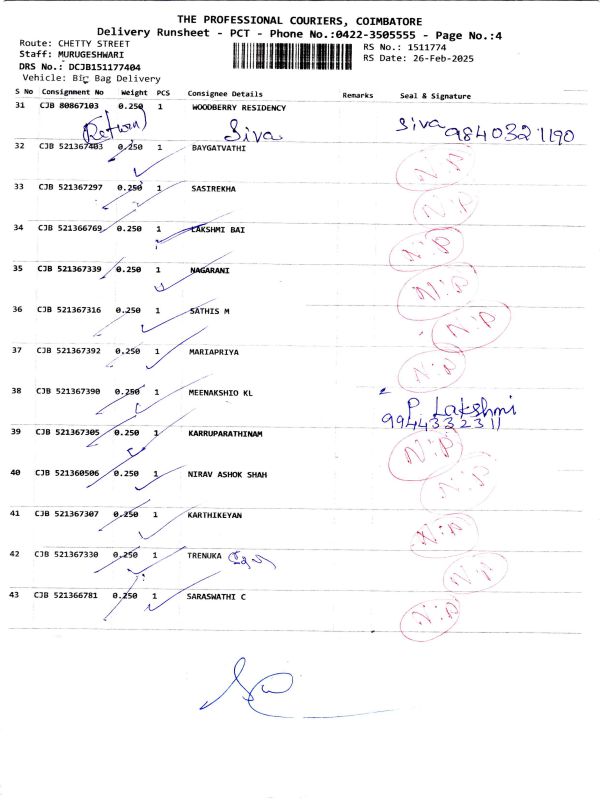 THE PROFESSIONAL COURIERS, COIMBATORE
Delivery Runsheet - PCT - Phone No.:0422-3505555 - Page No.:4
Route: CHETTY STREET RS No.: 1511774
Staff: MURUGESHWARI RS Date: 26-Feb-2025
DRS No.: DCJB151177404
Vehicle: Big Bag Delivery
S No Consignment No Weight PCS Consignee Details Remarks Seal & Signature
31 CJB 80867103 0.250 1 WOODBERRY RESIDENCY
(Return) Siva Siva 9840321190
32 CJB 521367403 0.250 1 BAYGATVATHI N.D
33 CJB 521367297 0.250 1 SASIREKHA N.D
34 CJB 521366769 0.250 1 LAKSHMI BAI N.D
35 CJB 521367339 0.250 1 NAGARANI N.D
36 CJB 521367316 0.250 1 SATHIS M N.D
37 CJB 521367392 0.250 1 MARIAPRIYA N.D
38 CJB 521367390 0.250 1 MEENAKSHIO KL P. Lakshmi
9944332311
39 CJB 521367305 0.250 1 KARRUPARATHINAM N.D
40 CJB 521360506 0.250 1 NIRAV ASHOK SHAH N.D
41 CJB 521367307 0.250 1 KARTHIKEYAN N.D
42 CJB 521367330 0.250 1 TRENUKA N.D
43 CJB 521366781 0.250 1 SARASWATHI C N.D